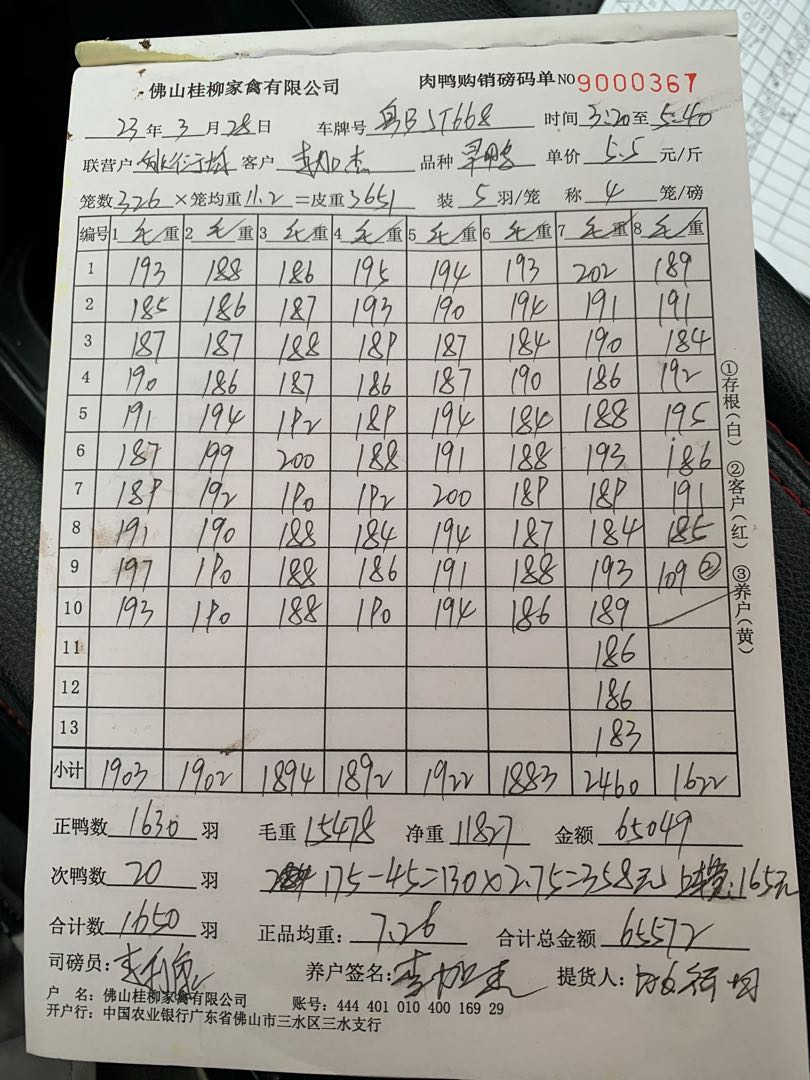 佛山桂柳家禽有限公司 肉鸭购销磅码单 NO 9000367
23年3月28日 车牌号 粤B JT668 时间 3:20至5:40
联营户 客户 李加杰 品种 单价 5.5 元/斤
笼数 326 ×笼均重 11.2 =皮重 3651 装 5 羽/笼 称 4 笼/磅
编号 1 毛重 2 毛重 3 毛重 4 毛重 5 毛重 6 毛重 7 毛重 8 毛重
1 193 188 186 195 194 193 202 189
2 185 186 187 193 190 194 191 191
3 187 187 188 189 187 184 190 184
4 190 186 187 186 187 190 186 192
5 191 194 192 189 194 184 188 195
6 187 199 200 188 191 188 193 186
7 189 192 190 192 200 189 189 191
8 191 190 188 184 194 187 184 185
9 197 190 188 186 191 188 193 109 ②
10 193 190 188 190 194 186 189
11 186
12 186
13 183
小计 1903 1902 1894 1892 1922 1883 2460 1622
正鸭数 1630 羽 毛重 15478 净重 11827 金额 65049
次鸭数 20 羽 175-45=130×2.75=358元 165元
合计数 1650 羽 正品均重: 7.26 合计总金额 65572
司磅员: 养户签名: 李加杰 提货人:
户 名: 佛山桂柳家禽有限公司 账号: 444 401 010 400 169 29
开户行: 中国农业银行广东省佛山市三水区三水支行
①存根(白) ②客户(红) ③养户(黄)